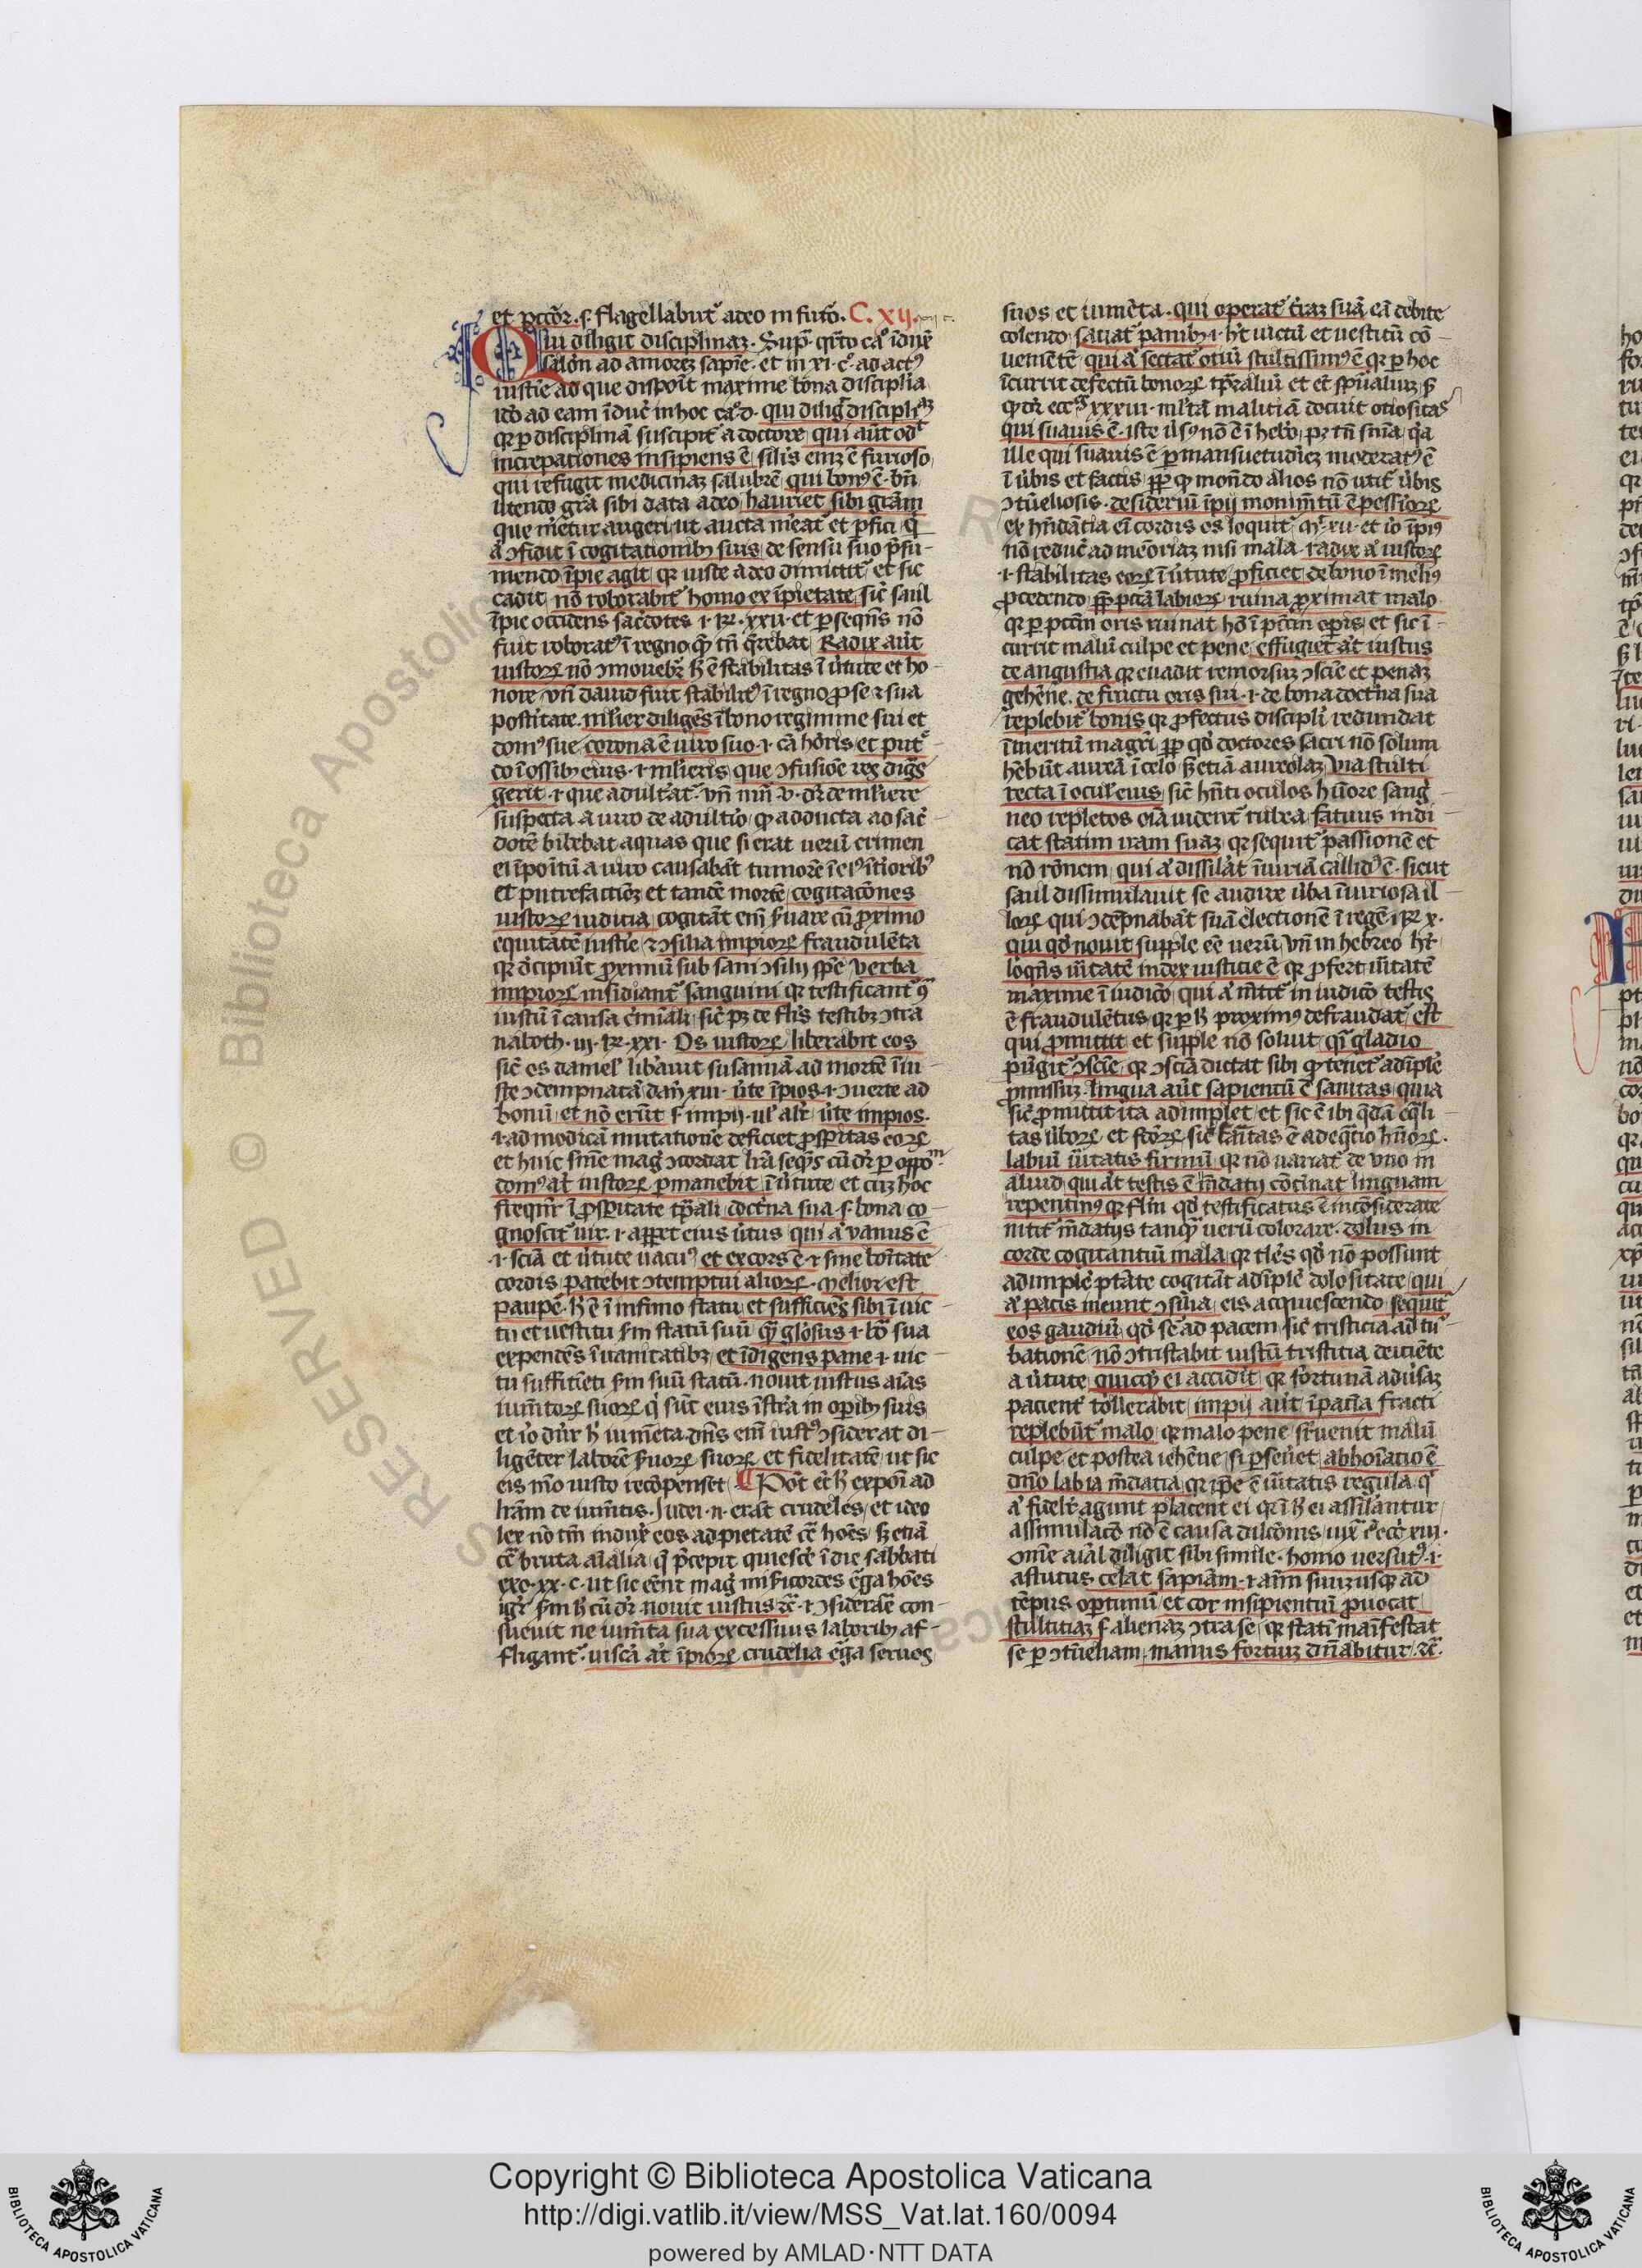 et pctor̄. s. flagellabunt᷑ a deo in futo. C. xij.
Qui diligit disciplinaz. Sup̄ qrto caº īduxͭ
salōn ad amorez sapīe. et in xi. cº. ad actꝰ
iustīe ad que disponit maxime bona disciplīa
ido ad eam īducͭ in hoc caº. d. qui diligͭ disciplīaz
qr p disciplinā suscipit᷑ a doctore qui aūt odͭ
increpationes insipiens ē silis eniz ē furioso
qui refugit medicinaz salubrē qui bonꝰ ē. bn̄
utendo grā sibi data a deo hauriet sibi grām
que mr̄etur augeri ut aucta mr̄eat et pfici qͥ
aͭ ꝯfidit ī cogitationibꝫ suis de sensu suo p̄su-
mendo īpie agit qr iuste a deo dimittit᷑ et sic
cadit nō roborabit᷑ homo ex īpietate sicͭ saul
īpie occidens sac̄dotes .i. Rꝫ. xxij. et p seqn̄s nō
fuit roboratꝰ ī regno qͣ tn̄ q̄rebat Radix aūt
iustorꝫ nō ꝯmouebͭ h̄ ē stabilitas ī ūtute et ho-
nore vn̄ dauid fuit stabilitꝰ ī regno p se ⁊ sua
postītate. mlier diligēs ī bono regimine sui et
domꝰ sue corona ē uiro suo .i. cā hōris et putͤ-
do ī ossibꝫ eius .i. mlieris que ꝯfusiōe res dignͣs
gerit .i. que adultat᷑. vn̄ nuͫ. v. dr̄ de mliere
suspecta a uiro de adultio qͥ adducta ad sac̄-
dotē bibebat aquas que si erat uerū crimen
ei īpoītū a uiro causabāt tumorē ī eiꝰ īteioribꝫ
et putrefactiōez et tandē mortē cogitacōnes
iustorꝫ iuditia cogitāt enī s̄uare cū pximo
equitatē iustīe ⁊ ꝯsilia impiorꝫ fraudulēta
qr decipiūt pximū sub sani ꝯsilij spē Verba
impiorꝫ insidiant᷑ sanguini qr testificant᷑ ꝯͣ
iustū ī causa c̄miāli sicͭ pꝫ de flis testibꝫ ꝯtra
naboth. iij. Rꝫ. xxi. Os iustorꝫ liberabit eos
sicͭ os daniel liba̅uit susannā ad mortē īiu-
ste ꝯdempnatā dan̄ xiii. ūte īpios .i. ꝯuerte ad
bonū et nō erūt s. impij. ul alͭr ūte impios.
.i. ad modicā mutationē deficiet psperitas eorꝫ
et huic sn̄ie magͥ ꝯcordat lrā seqn̄s cū dr̄ p oppoͫ.
domꝰ aͭt iustorꝫ pmanebit ī ūtute et cuz hoc
freqn̄r ī psperitate tpali doctͥna sua s. bona co-
gnoscit᷑ uir .i. apparet eius ūtus qui aͭ vanus ē
.i. sciā et ūtute uacuꝰ et excors ē .i. sine bonitate
cordis patebit ꝯtemptui aliorꝫ. Melior est
pauper. h̄ ē ī infimo statu et sufficiēs sibi ī uic-
tu et uestitu s̄m statū suū qͣ glosus .i. bo sua
expendēs ī uanitatibꝫ et īdigens pane .i. uic-
tu sufficiēti s̄m suū statū. nouit iustus aīas
iumētorꝫ suorꝫ qͥ sūt eius īstra in opibꝫ suis
et iō dnr̄ h̄ iumēta. dn̄s enī iustꝰ ꝯsiderat di-
ligēter laborē s̄uorꝫ suorꝫ et fidelitatē ut sic
eis mō iusto recōpenset ¶ Pōt etͥ h̄ exponi ad
lrām de iumētis. Iudei .n. erāt crudeles et ideo
lex nō tm̄ induxͭ eos ad pietatē cͣ hoēs s̄ etiā
cͣ bruta aīalia qͥ p̄cepit quiescͤ ī die sabbati
exo. xx. c. ut sic eēnt magͥ mīs̄icordes ēga hoēs
igr̄ s̄m h̄ cū dr̄. nouit iustus ⁊c̄. i. ꝯsiderare con-
sueuit ne iumēta sua excessiuus laboribꝫ af-
fligant᷑. uiscā aͭt īpiorꝫ crudelia ēga seruos
suos et iumēta. qui operat᷑ tr̄az suā eā debite
colendo satiat᷑ panibꝫ .i. hͭt uictū et uestitū cō-
ueniētē qui aͭ sectat᷑ otiū stultissimꝰ ē qr p hoc
īcurrit defectū bonorꝫ tp̄aliū et etͥ sp̄ualiuz s̄
qd dr̄ eccͣ xxxiii. ml̄tā malitiā docuit otiositas
qui suauis ē. iste ūsꝰ nō ē ī hebo. pꝫ tn̄ sn̄ia qͣ
ille qui suauis ē p mansuetudinez moderatꝰ ē
ī ūbis et factis ppͭ qd monendo alios nō utit᷑ ūbis
ꝯtūeliosis. desideriū īpij monimētū ē pessiorꝫ
ex hn̄dātia eī cordis os loquit᷑ Mͭ. xii. et iō īpiꝰ
nō reducͭ ad memoriaz nisi mala. radix aͭ iustorꝫ
.i. stabilitas eorꝫ ī ūtute proficiet de bono ī meliꝰ
procedendo ppͭ pctā labiorꝫ ruina proximat malo
qr p pctm̄ oris ruinat hō ī pctm̄ opis et sic ī-
currit malū culpe et pene effugiet aͭt iustus
de angustia qr euadit remorsuz ꝯscīe et penaz
gehēne. de fructu oris sui .i. de bona doctͥna sua
replebit᷑ bonis qr profectus discipli redundat
ī meritū magrī ppͭ qd doctores sacri nō solum
hēbūt aureā ī celo s̄ etiā aureolaz via stulti
recta ī oculͭ eius sicͭ hn̄ti oculos hūore sangͥ-
neo repletos oīa uident᷑ rubea fatuus indi
cat statim iram suaz qr sequit᷑ passionē et
nō rōnem qui aͭ dissilat īiuriā callidꝰ ē. sicut
saul dissimulauit se audire ūba īiuriosa il-
lorꝫ qui ꝯtēpnabāt suā electionē ī regē .i. Rꝫ x.
qui qd nouit supple eē uerū vn̄ in hebreo hͭr.
loqn̄s ūitatē index iusticie ē qr profert ūitatē
maxime ī iudico qui aͭ mētit᷑ in iudico testis
ē fraudulētus qr p h̄ proximꝰ defraudat᷑ est
qui promittit et supple nō soluit qͣi gladio
pūgit᷑ ꝯscīe qr ꝯsciā dictat sibi qd tenet᷑ adīplē
promissuz. lingua aūt sapientū ē sanitas quia
sicͭ promittit ita adimplet et sic ē ibi qdā eqli
tas ūborꝫ et factorꝫ sicͭ sanitas ē adeqͣtio hūorꝫ.
labiū ūitatis firmū qr nō uariat᷑ de vno in
aliud qui aͭt testis ē mēdatij cōcinat linguam
repentinꝰ qr stīm qd testificatus ē incōsiderate
nitit᷑ mēdatijs tanqͣ uerū colorare. dolus in
corde cogitantiū mala qr tlēs qd nō possunt
adimplē ptāte cogitāt adīplē dolositate qui
aͭ pacis ineunt ꝯsilia eis acquiescendo sequit᷑
eos gaudiū qd sē ad pacem sicͭ tristicia ad tur-
bationē nō ꝯtristabit iustū tristitia deiciēte
a ūtute quicqͥd ei acciderit qr fortunā adūsaz
pacient᷑ tollerabit impij aūt īpaciā fracti
replebūt᷑ malo qr malo pene sr̄uenit malū
culpe et postea iehēne si p̄seūet abhoīatio ē
dn̄o labia mēdatia qr ipē ē ūitatis regula. qͥ
aͭ fidelr̄ agunt placent ei qr ī h̄ ei assilantur
assimulacō nō ē causa dilcōnis iuxͣ eccͥ xiii.
omne aīal diligit sibi simile. homo uersutꝰ .i.
astutus celat sapiām .i. aīm suuz usqꝫ ad
tēpus oportunū et cor insipientiū prouocat
stultitiaz s. alienaz ꝯtra se qr statī manifestat
se p ꝯtūeliam. manus fortiuz dn̄abitur. ⁊c̄.
Copyright © Biblioteca Apostolica Vaticana
http://digi.vatlib.it/view/MSS_Vat.lat.160/0094
powered by AMLAD·NTT DATA